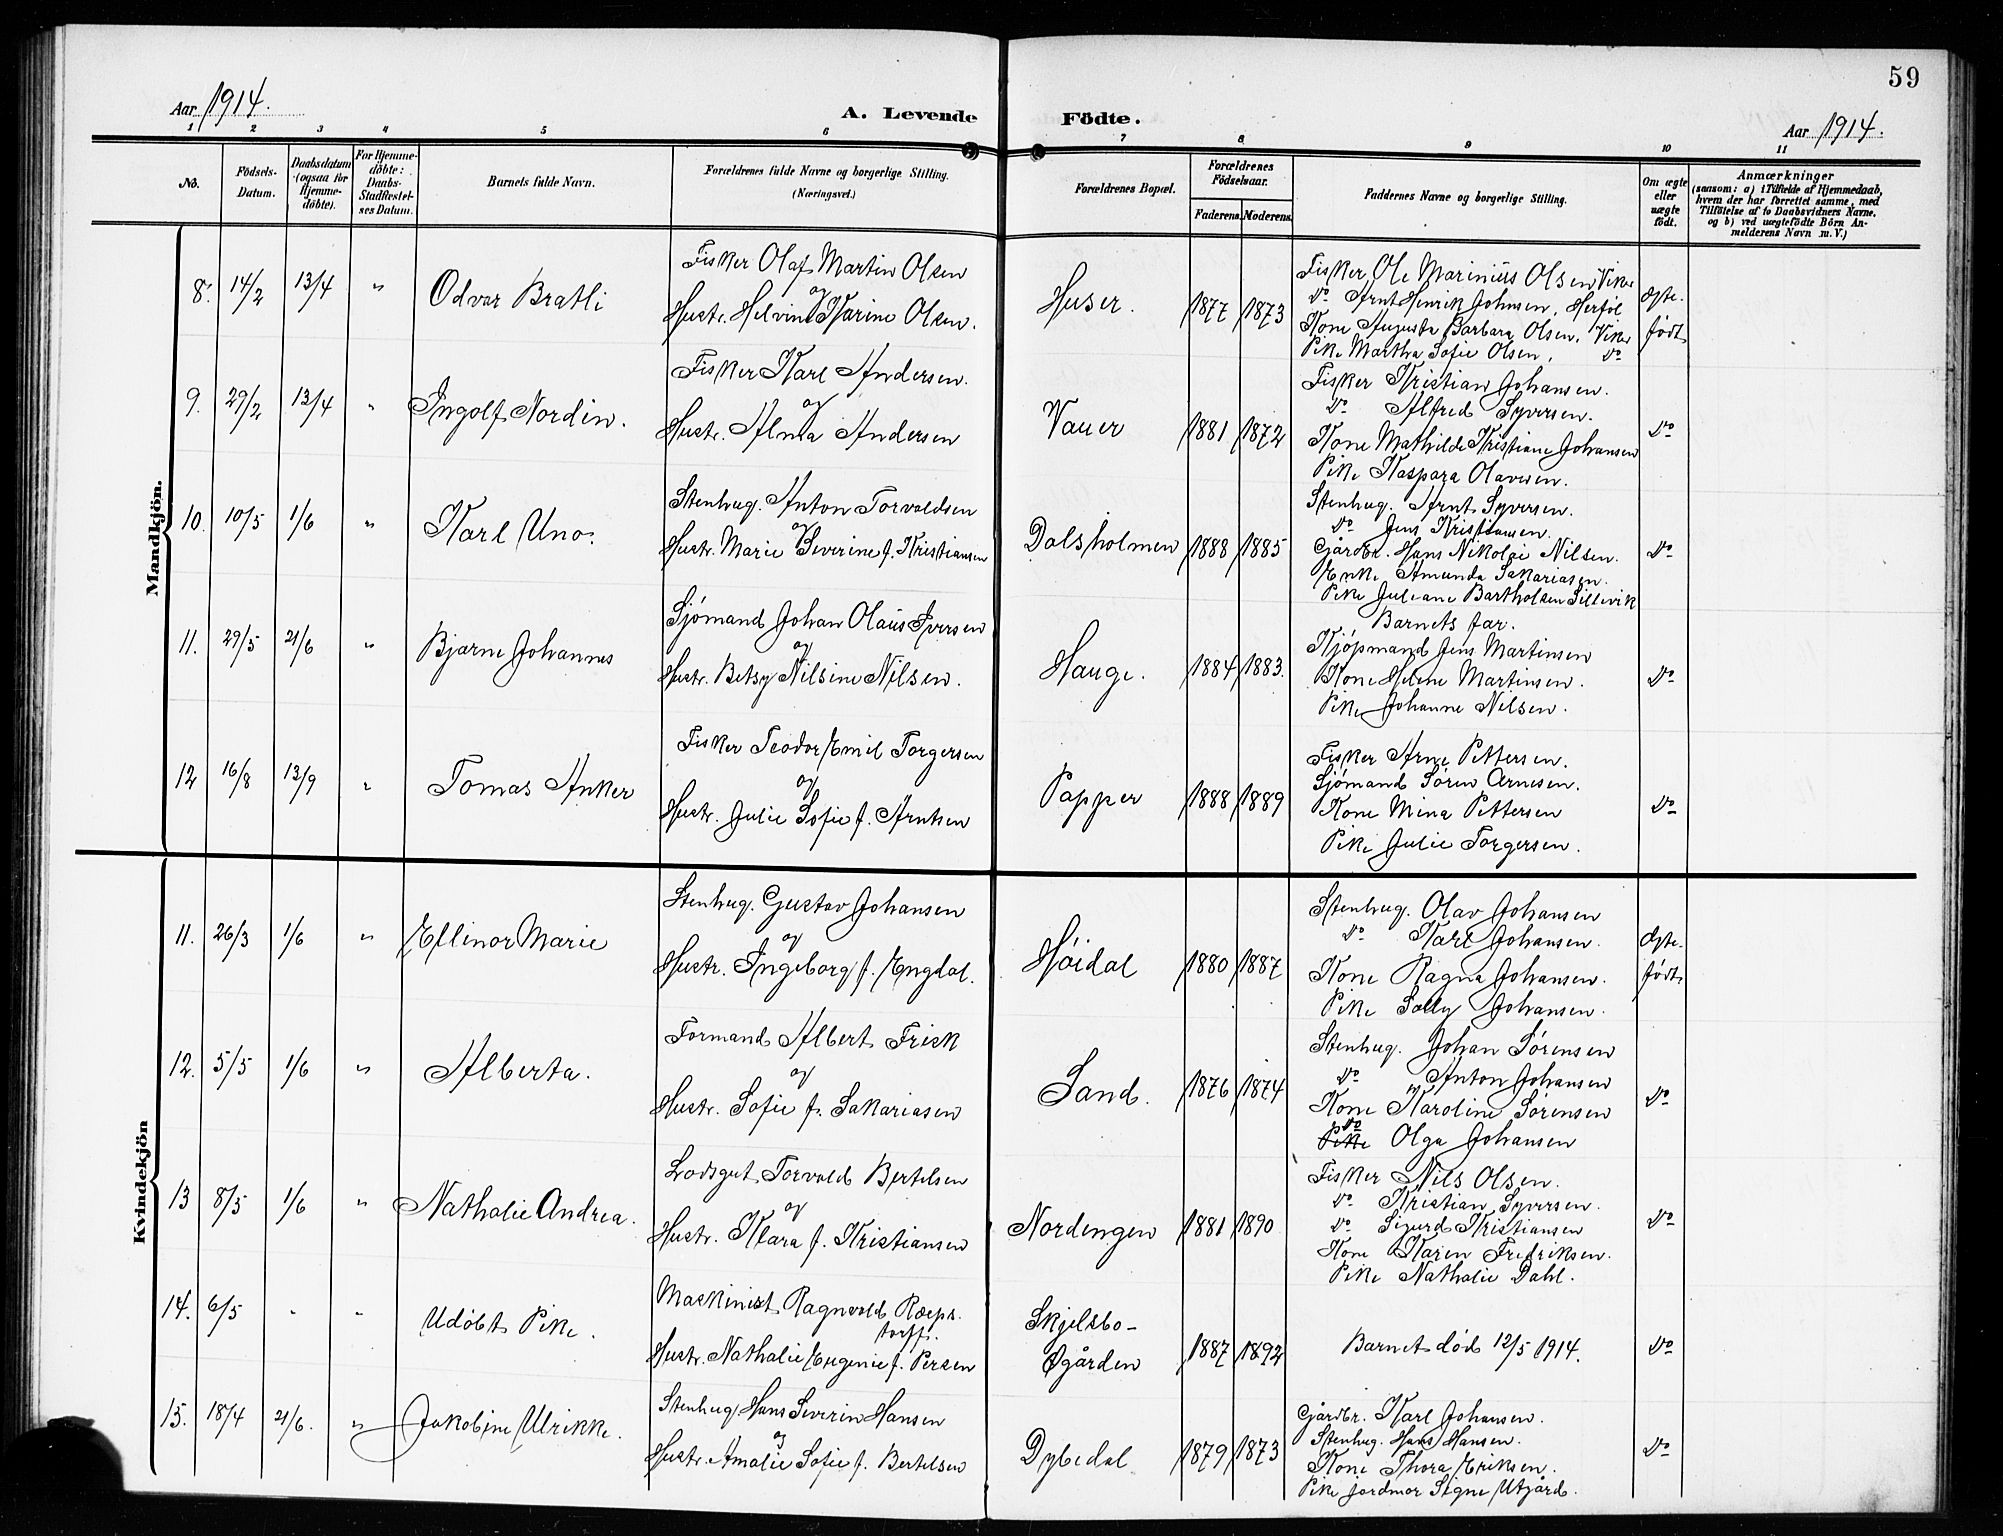 59
Aar 1914.
A. Levende Födte.
Aar 1914.
1 2 3 4 5 6 7 8 9 10 11
No.
Födsels-
Datum.
Daabsdatum
(ogsaa for
Hjemme-
döbte).
For Hjemme-
döbte:
Daabs-
Stadfestel-
ses Datum.
Barnets fulde Navn.
Forældrenes fulde Navne og borgerlige Stilling.
(Næringsvei.)
Forældrenes Bopæl.
Forældrenes
Födselsaar.
Faderens. Moderens.
Faddernes Navne og borgerlige Stilling.
Om ægte
eller
uægte
födt.
Anmærkninger
(saasom: a) i Tilfælde af Hjemmedaab,
hvem der har forrettet samme, med
Tilföielse af to Daabsvidners Navne,
og b) ved uægtefödte Börn An-
melderens Navn m. V.)
Mandkjön.
8. 14/2 13/4 " Odvar Bratli
Fisker Olaf Martin Olsen
og
Hustr. Helvine Karine Olsen.
Huser. 1877 1873
Fisker Ole Marinius Olsen Viker
Do Arnt Henrik Johnsen, Herføl
Kone Augusta Barbara Olsen, Viker
Pike Martha Sofie Olsen, Do
Ægte-
født
9. 29/2 13/4 " Ingolf Nordin.
Fisker Karl Andersen.
og
Hustr. Alma Andersen
Vauer 1881 1872
Fisker Kristian Johansen.
Do Alfred Syversen.
Kone Mathilde Kristiane Johansen
Pike Kaspara Olavesen.
Do
10. 10/5 1/6 " Karl Uno.
Stenhug. Anton Torvaldsen
og
Hustr. Marie Severine f. Kristiansen
Dalsholmen 1888 1885
Stenhug. Arnt Syversen.
Do Jens Kristiansen.
Gårdbr. Hans Nikolai Nilsen.
Enke Amunda Sakariasen.
Pike Juliane Bartholsen Sillevik
Do
11. 29/5 21/6 " Bjarne Johannes
Sjømand Johan Olaus Iversen
og
Hustr. Betsy Nilsine Nilsen.
Hauge. 1884 1883.
Barnets far.
Kjøpmand Jens Martinsen
Kone Helene Martinsen.
Pike Johanne Nilsen.
Do
12 16/8 13/9 " Tomas Anker
Fisker Teodor Emil Torgersen
og
Hustr. Julie Sofie f. Arntsen
Papper 1888 1889
Fisker Arne Pettersen.
Sjømand Søren Arnesen.
Kone Mina Pettersen
Pike Julie Torgersen.
Do
Kvindekjön
11. 26/3 1/6 " Ellinor Marie
Stenhug. Gustav Johansen
og
Hustr. Ingeborg f. Engdal.
Høidal 1880 1887
Stenhug. Olav Johansen
Do Karl Johansen.
Kone Ragna Johansen.
Pike Sally Johansen.
Ægte-
født
12. 5/5 1/6 " Alberta.
Formand Albert Frisk
og
Hustr. Sofie f. Sakariasen
Sand. 1876 1874
Stenhug. Johan Sørensen
Do Anton Johansen
Kone Karoline Sørensen
Do
Pike Olga Johansen
Do
13 8/5 1/6 " Nathalie Andrea.
Lodsgut Torvald Bertelsen
og
Hustr. Klara f. Kristiansen
Nordengen 1881 1890
Fisker Nils Olsen.
Do Kristian Syversen.
Do Sigurd Kristiansen
Kone Karen Fredriksen.
Pike Nathalie Dahl.
Do
14. 6/5 " " Udøbt Pike.
Maskinist Ragnvald Raeps-
torff.
Hustr. Nathalie Eugenie f. Persen
Skjelsbo-
Øgården 1887 1892
Barnet død 12/5 1914.
Do
15. 18/4 21/6. " Jakobine Ulrikke.
Stenhug. Hans Severin Hansen
og
Hustr. Amalie Sofie f. Bertelsen
Dybedal 1879 1873
Gårdbr. Karl Johansen.
Stenhug. Hans Hansen.
Kone Thora Eriksen.
Pike Jordmor Signe Utgård.
Do